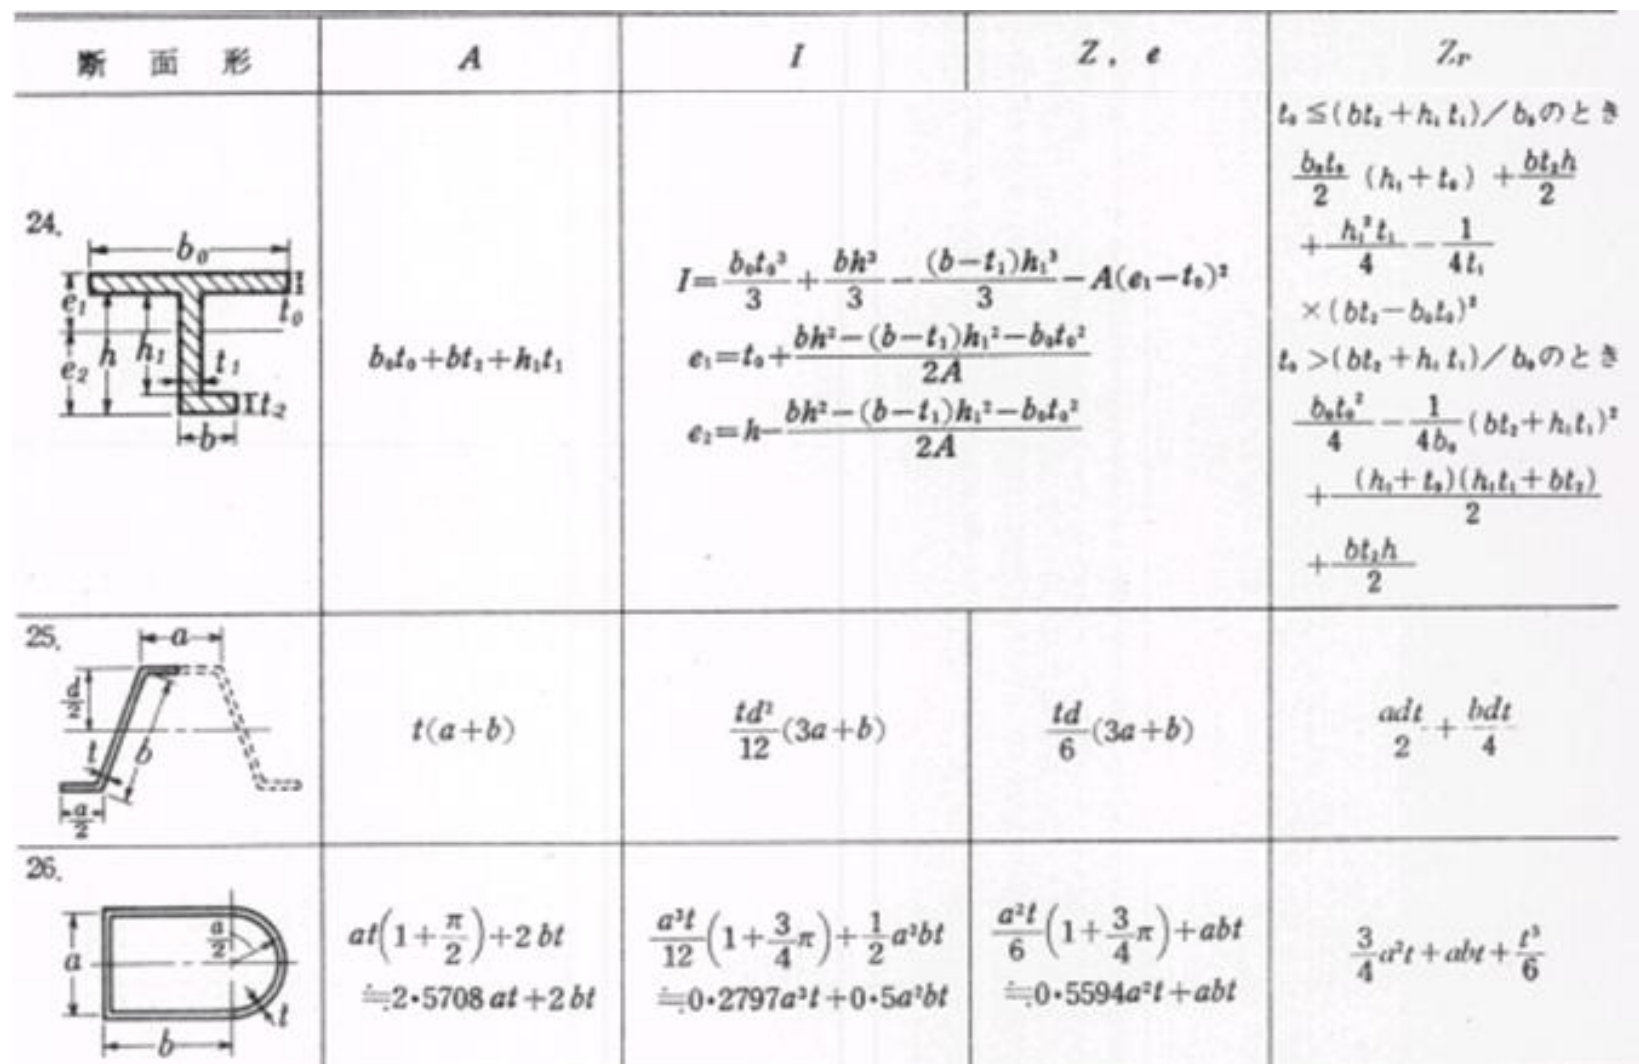 断面形 A I Z, e Zp
24.
b₀
e₁
t₀
h h₁
e₂
t₁
t₂
b
b₀t₀+bt₂+h₁t₁
I=b₀t₀³/3+bh³/3−(b−t₁)h₁³/3−A(e₁−t₀)²
e₁=t₀+(bh²−(b−t₁)h₁²−b₀t₀²)/2A
e₂=h−(bh²−(b−t₁)h₁²−b₀t₀²)/2A
t₀≤(bt₂+h₁t₁)/b₀のとき
b₀t₀/2 (h₁+t₀) +bt₂h/2
+h₁²t₁/4−1/4t₁
×(bt₂−b₀t₀)²
t₀>(bt₂+h₁t₁)/b₀のとき
b₀t₀²/4−1/4b₀(bt₂+h₁t₁)²
+(h₁+t₀)(h₁t₁+bt₂)/2
+bt₂h/2
25.
a
d/2
t b
a/2
t(a+b)
td²/12(3a+b)
td/6(3a+b)
adt/2+bdt/4
26.
a/2
a
t
b
at(1+π/2)+2bt
≒2·5708at+2bt
a³t/12(1+3/4π)+1/2a²bt
≒0·2797a³t+0·5a²bt
a²t/6(1+3/4π)+abt
≒0·5594a²t+abt
3/4a²t+abt+t³/6